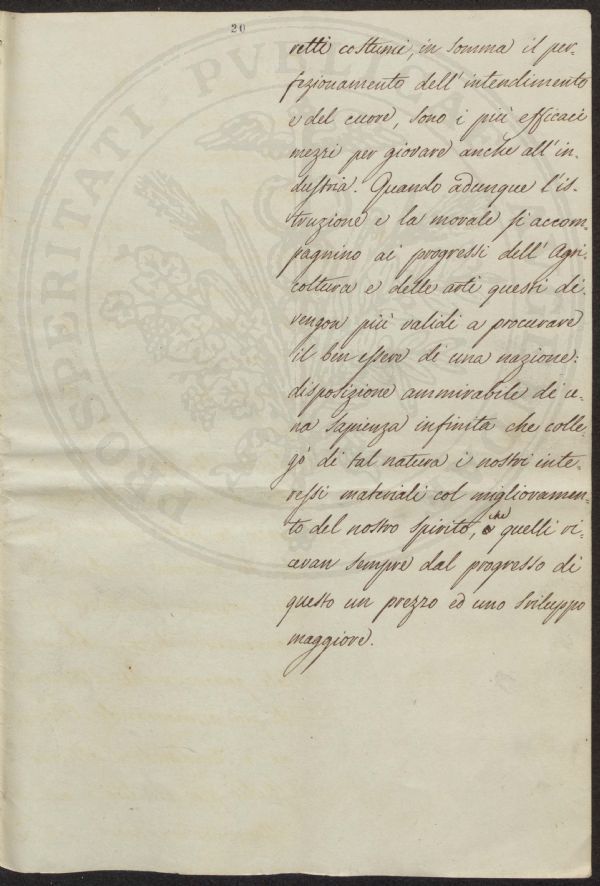 20
retti costumi, in somma il per-
fezionamento dell'intendimento
e del cuore, sono i più efficaci
mezzi per giovare anche all'in-
dustria. Quando adunque l'is-
truzione e la morale si accom-
pagnino ai progressi dell'Agri-
coltura e delle arti questi di-
vengon più validi a procurare
il ben essere di una nazione:
disposizione ammirabile di u-
na sapienza infinita che colle-
gò di tal natura i nostri inte-
ressi materiali col miglioramen-
to del nostro spirito, che quelli ri-
cavan sempre dal progresso di
questo un prezzo ed uno sviluppo
maggiore.
PROSPERITATI PUBLICAE